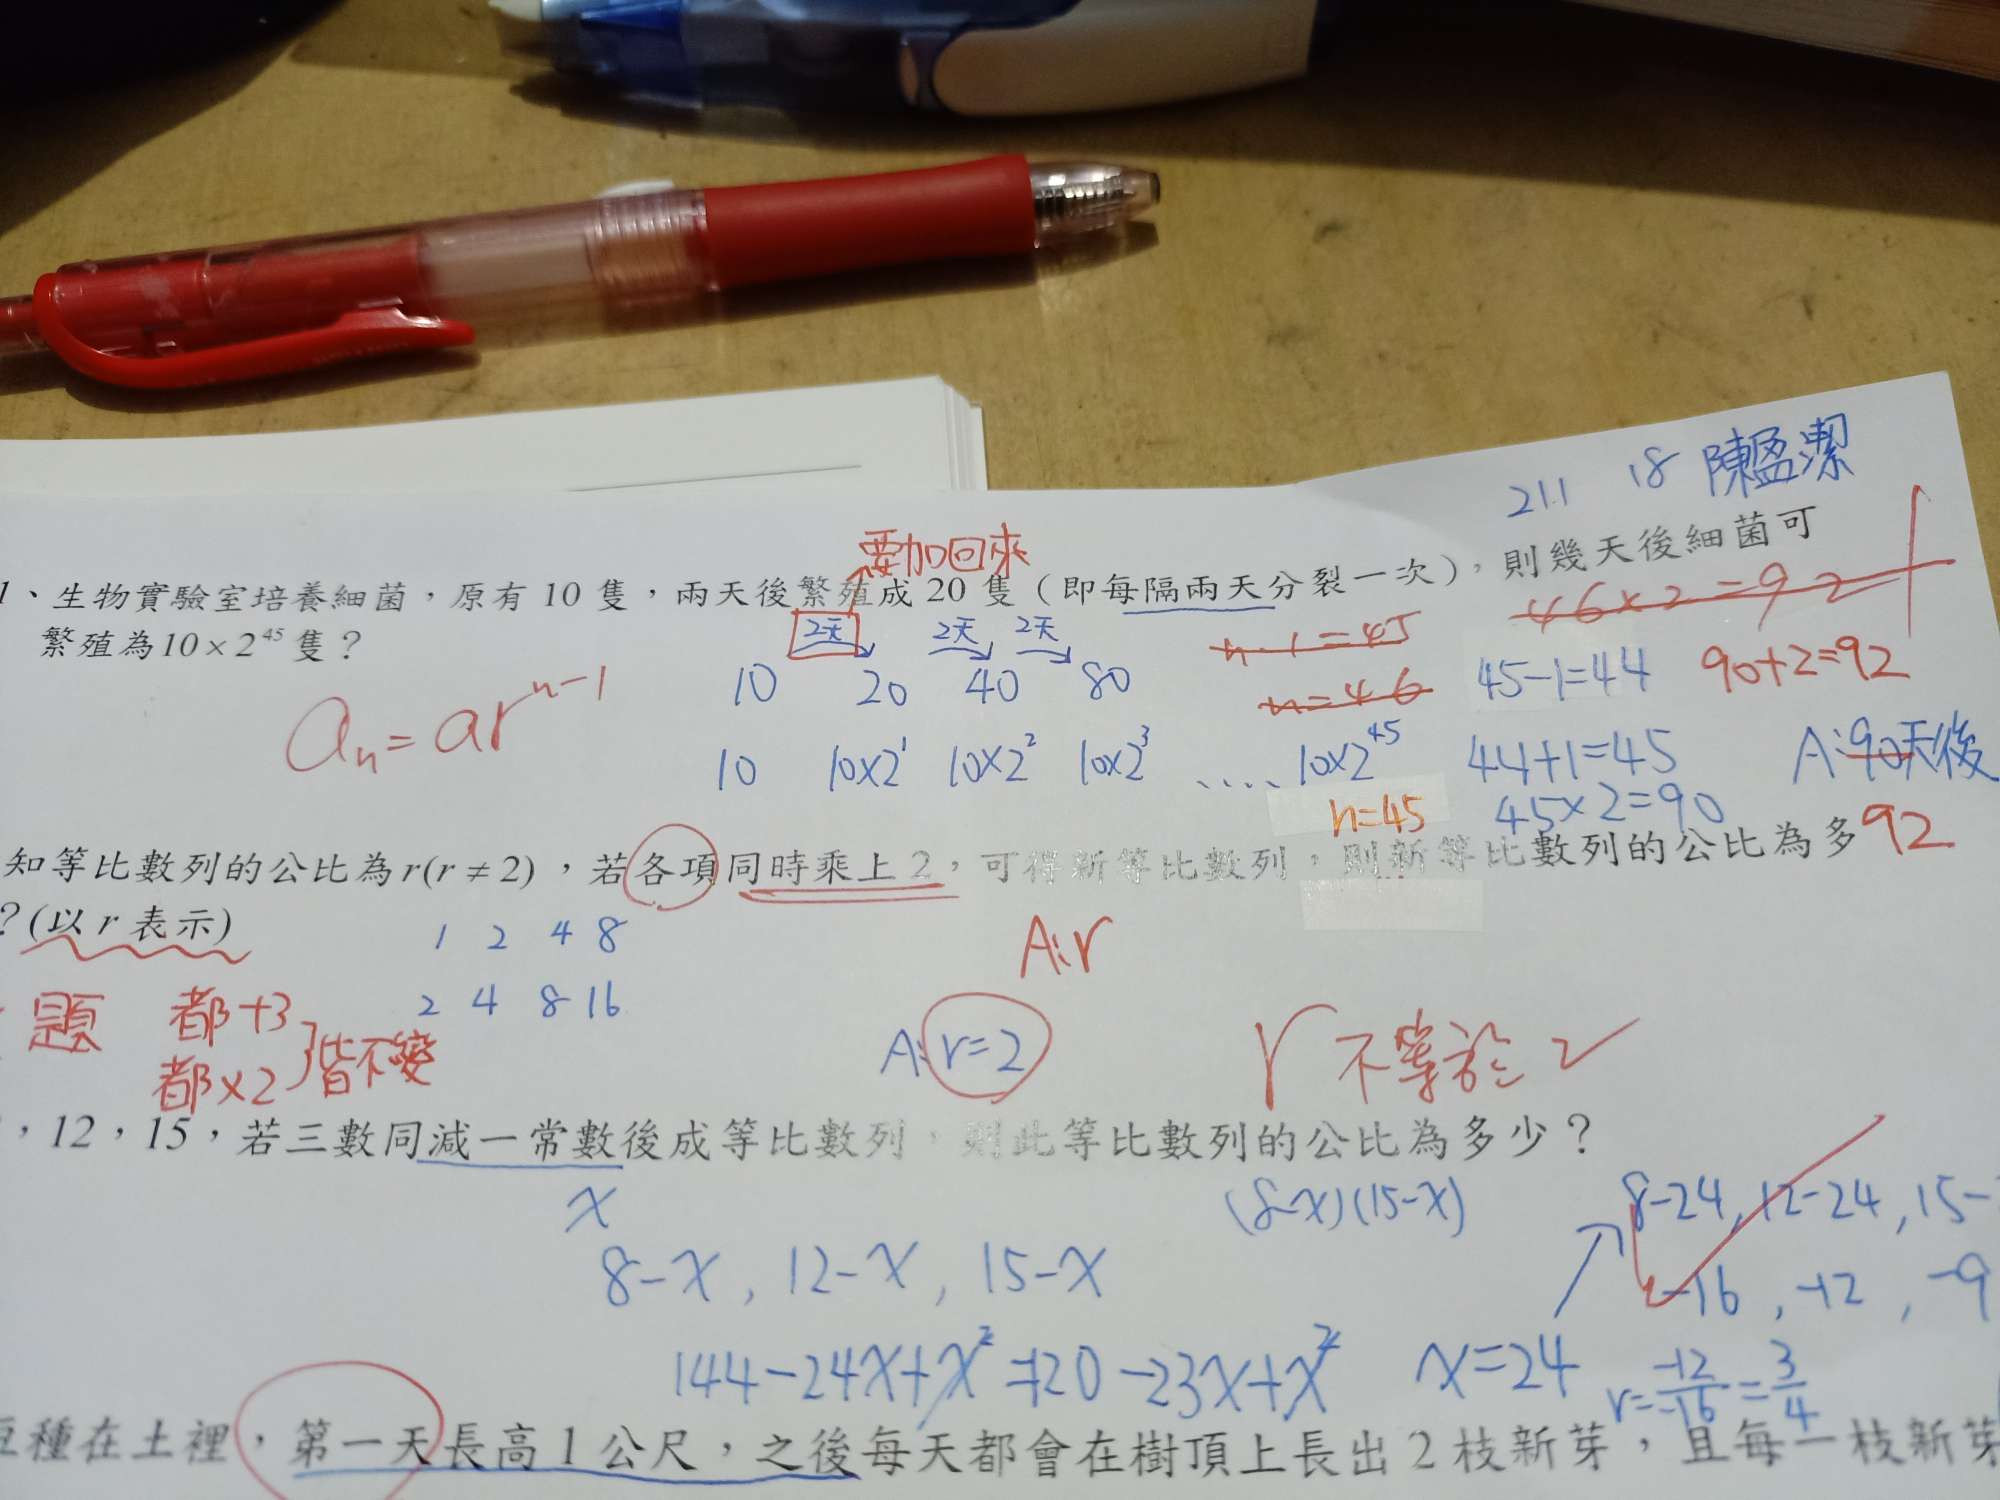 211 18 陳盈潔
要加回來
1、生物實驗室培養細菌，原有 10 隻，兩天後繁殖成 20 隻（即每隔兩天分裂一次），則幾天後細菌可
繁殖為10×2⁴⁵隻？
46×2=92
2天 2天 2天
n-1=45
10 20 40 80
n=46
45-1=44
90+2=92
aₙ=arⁿ⁻¹
10 10×2¹ 10×2² 10×2³ ..... 10×2⁴⁵
44+1=45
A:90天後
n=45
45×2=90
92
知等比數列的公比為r(r≠2)，若各項同時乘上2，可得新等比數列，則新等比數列的公比為多
？(以 r 表示)
1 2 4 8
A:r
題 都+3
都×2
皆不變
2 4 8 16
A:r=2
r不等於2
，12，15，若三數同減一常數後成等比數列，則此等比數列的公比為多少？
x
(8-x)(15-x)
8-24, 12-24, 15-
8-x, 12-x, 15-x
-16, -12, -9
144-24x+x²=120-23x+x²
x=24
r=-12/-16=3/4
種在土裡，第一天長高1公尺，之後每天都會在樹頂上長出2枝新芽，且每一枝新芽